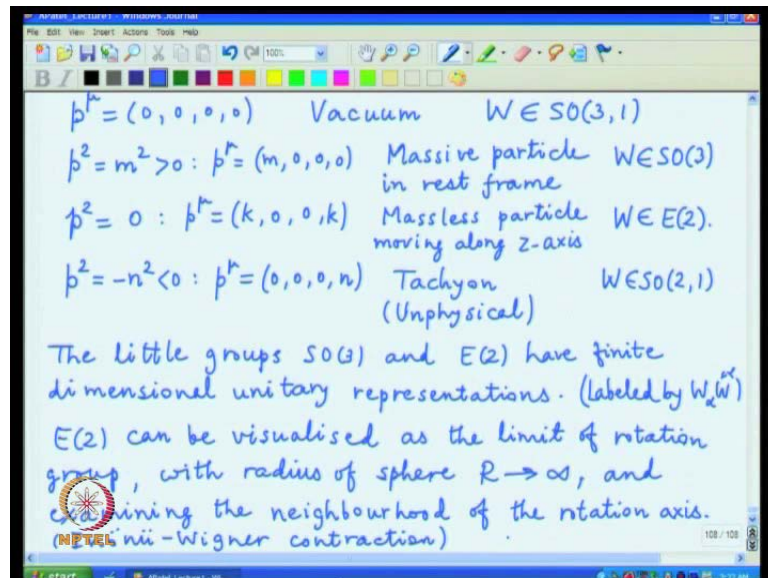 APatel_Lecture1 - Windows Journal
File Edit View Insert Actions Tools Help
100%
B I
p^μ = (0, 0, 0, 0) Vacuum W ∈ SO(3,1)
p² = m² > 0 : p^μ = (m, 0, 0, 0) Massive particle W ∈ SO(3)
in rest frame
p² = 0 : p^μ = (k, 0, 0, k) Massless particle W ∈ E(2).
moving along z-axis
p² = -n² < 0 : p^μ = (0, 0, 0, n) Tachyon W ∈ SO(2,1)
(Unphysical)
The little groups SO(3) and E(2) have finite
dimensional unitary representations. (labeled by W_α W^α)
E(2) can be visualised as the limit of rotation
group, with radius of sphere R → ∞, and
examining the neighbourhood of the rotation axis.
-Wigner contraction)
NPTEL
108 / 108
start